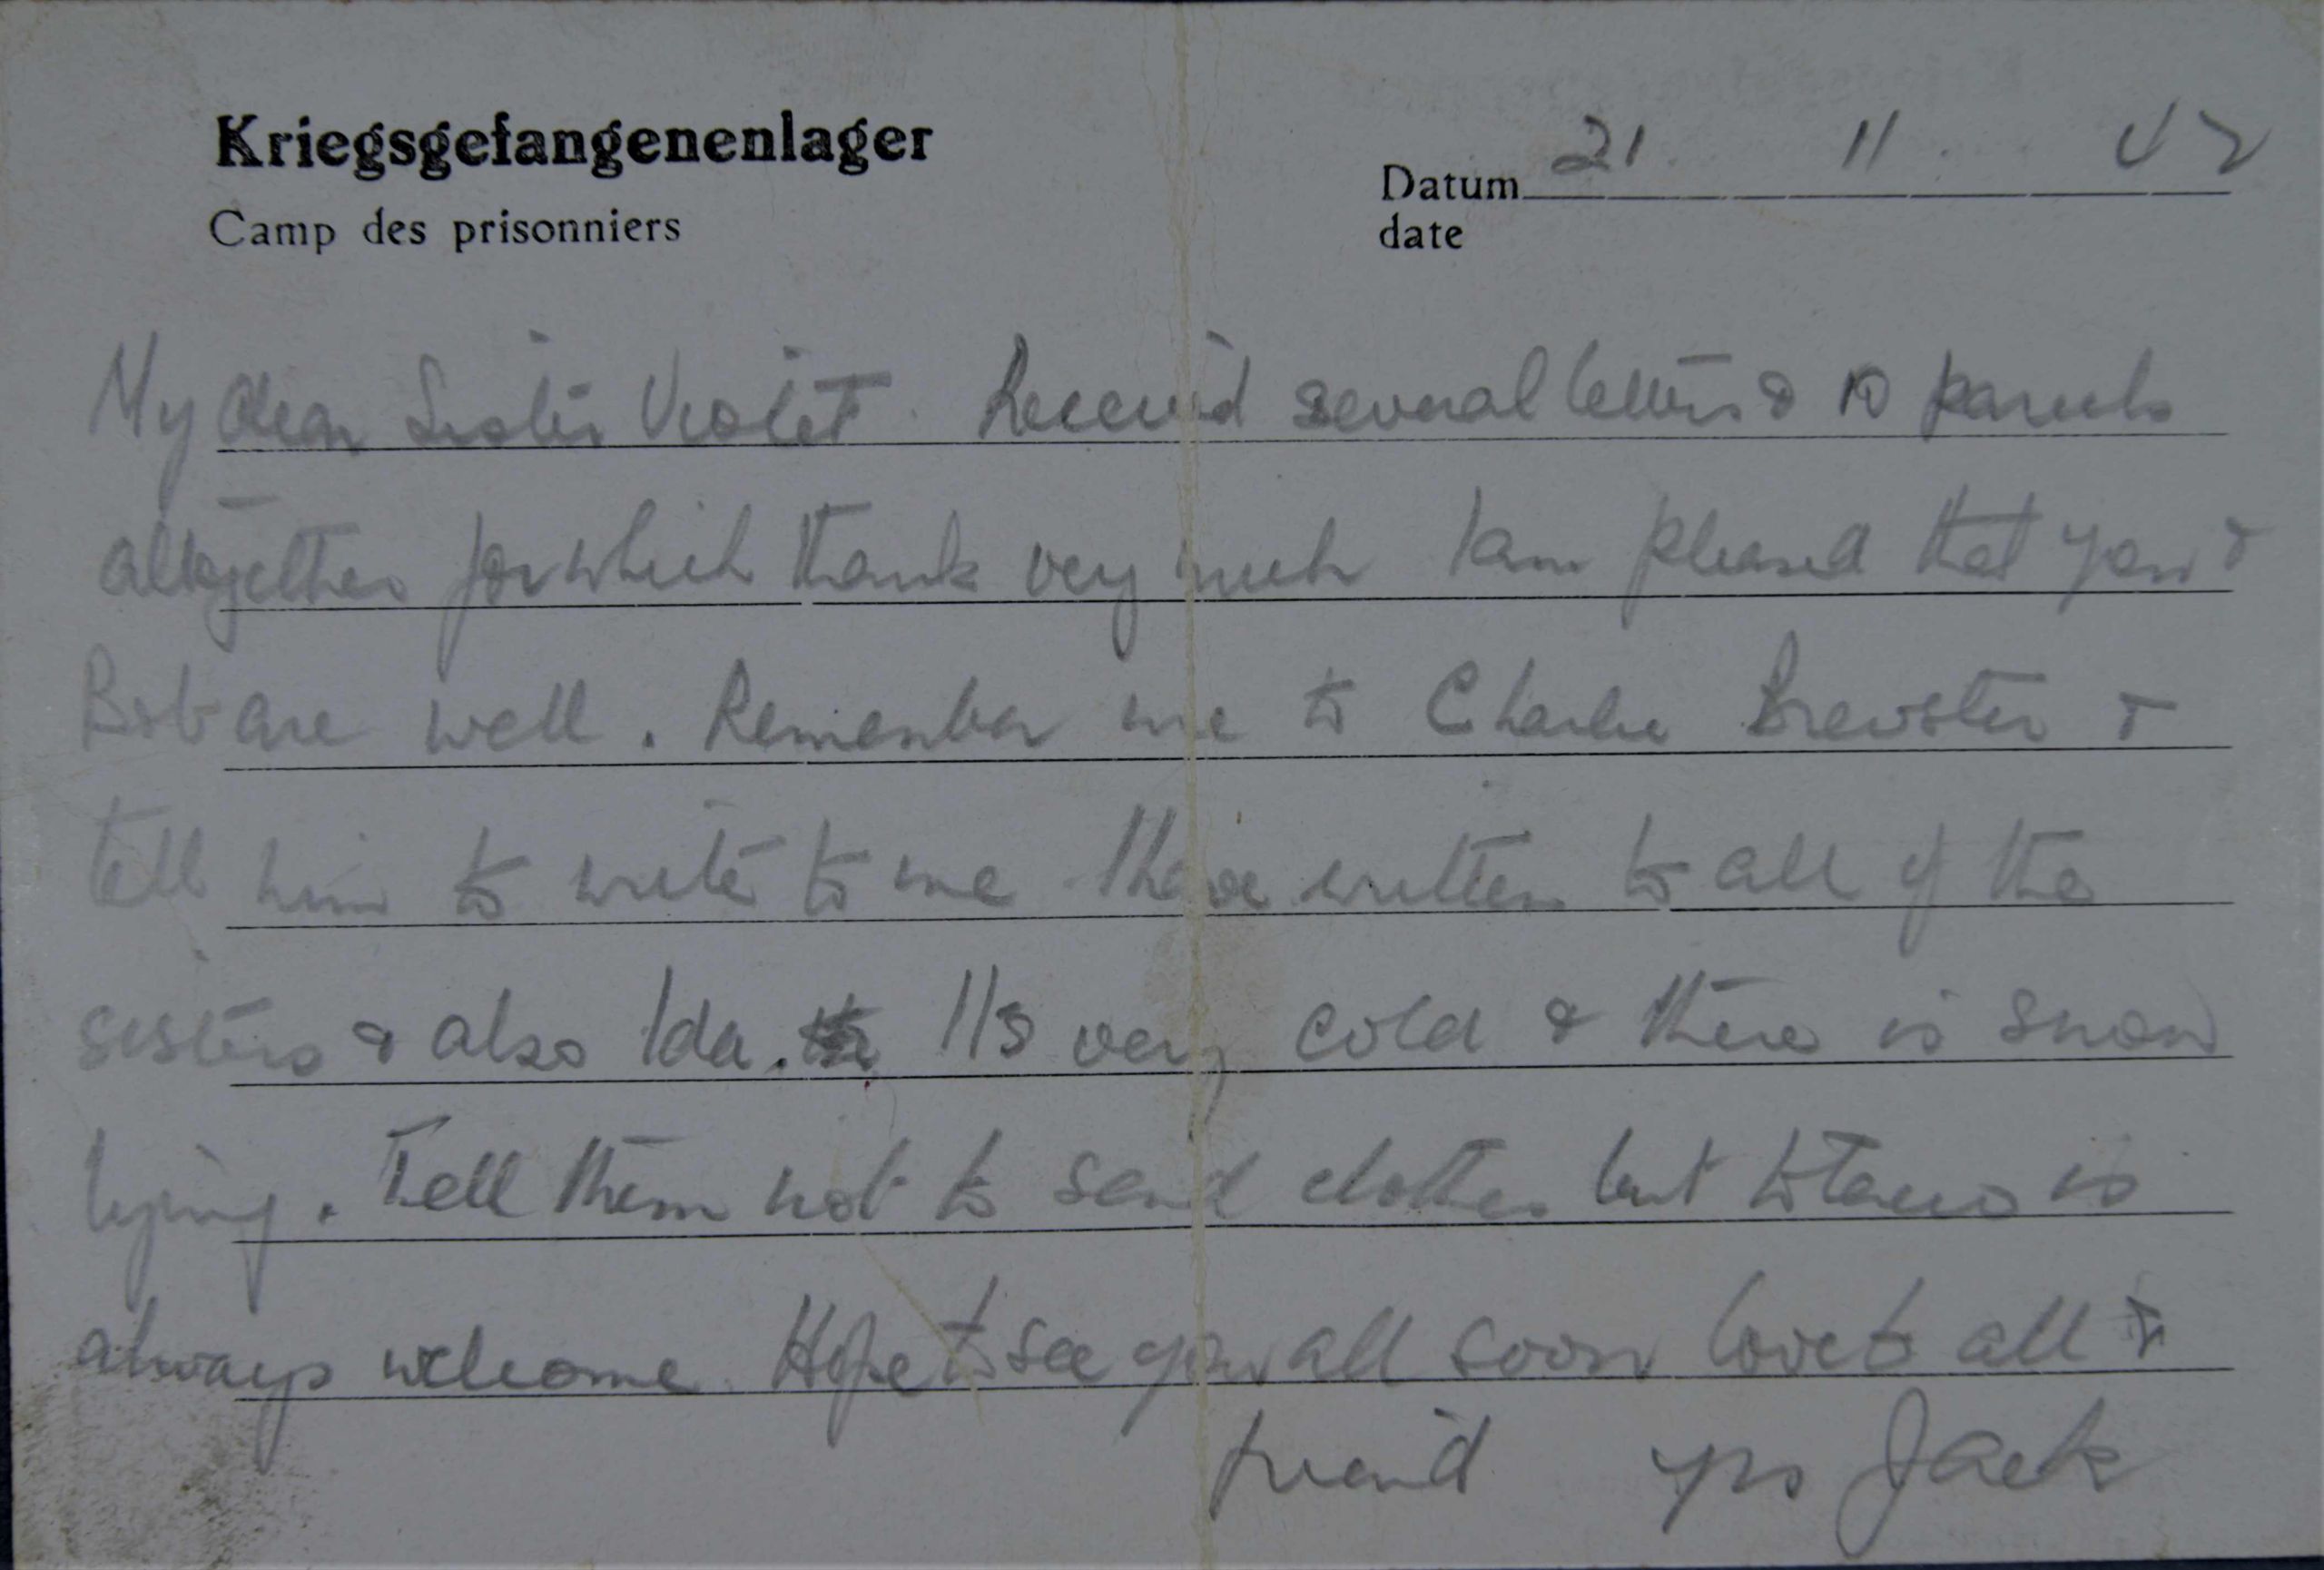 Kriegsgefangenenlager
Camp des prisonniers
Datum 21 11 42
date
My dear Sister Violet. Received several letters & 10 parcels
altogether for which thank very much I am pleased that you &
Bob are well. Remember me to Charlie Brewster &
tell him to write to me I have written to all of the
sisters & also Ida. Its very cold & there is snow
lying. Tell them not to send clothes but tobacco is
always welcome Hope to see you all soon love to all &
friend yrs Jack